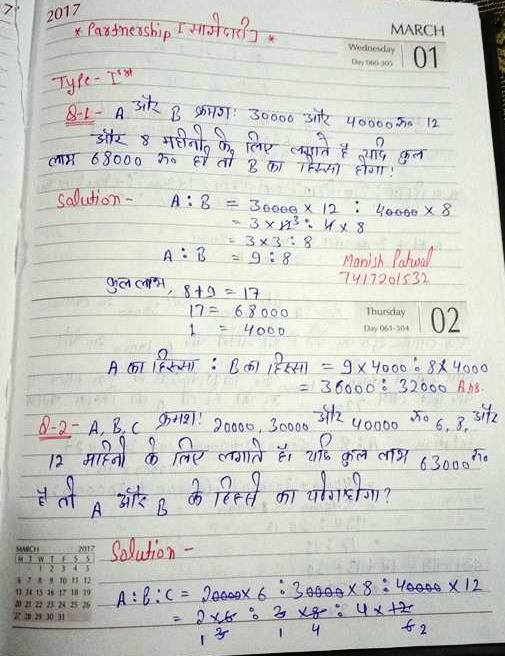 2017
MARCH
* Partnership [साझेदारी] *
Wednesday
Day 060-305
01
Type- Ist
Q-1- A और B क्रमश: 30000 और 40000रू० 12
और 8 महीनो के लिए लगाते है यदि कुल
लाभ 68000 रू० हो तो B का हिस्सा होगा!
Solution- A : B = 30000 x 12 : 40000 x 8
= 3 x 12 3 : 4 x 8
= 3 x 3 : 8
A : B = 9 : 8
Manish Patwal
7417201532
कुल लाभ, 8+9 = 17
17 = 68000
1 = 4000
Thursday
Day 061-304
02
A का हिस्सा : B का हिस्सा = 9 x 4000 : 8 x 4000
= 36000 : 32000 Ans.
Q-2- A, B, C क्रमश: 20000, 30000 और 40000 रू० 6, 8, और
12 माहिनो के लिए लगाते है। यदि कुल लाभ 63000रू०
है तो A और B के हिस्से का योग होगा?
Solution-
A : B : C = 20000 x 6 : 30000 x 8 : 40000 x 12
= 2 x 6 : 3 x 8 : 4 x 12
1 3 1 4 6 2
MARCH 2017
M T W T F S S
1 2 3 4 5
6 7 8 9 10 11 12
13 14 15 16 17 18 19
20 21 22 23 24 25 26
27 28 29 30 31